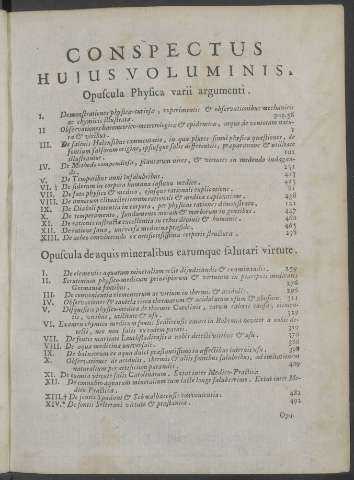 CONSPECTUS
HUJUS VOLUMINIS.
Opuscula Physica varii argumenti.
I. Demonstrationes physicæ curiosæ, experimentis & observationibus mechanicis
ac chymicis illustratæ. pag.56
II Observationes barometrico-meteorologicæ & epidemicæ, atque de ventorum natu-
ra & viribus. 1
III. De salinis Halensibus commentatio, in qua plures simul physicæ quæstiones, de
fontium salsorum origine, ipsiusque salis differentiis, præparatione & utilitate
illustrantur. 101
IV. De Methodo compendiosa, plantarum vires, & virtutes in medendo indagan-
di. 251
V. De Temporibus anni insalubribus. 423
VI. † De siderum in corpora humana influxu medico. 423
VII. De fato physico & medico, ejusque rationali explicatione. 81
VIII. De annorum climactericorum rationali & medica explicatione. 438
IX. De Diaboli potentia in corpora, per physicas rationes demonstrata. 121
X. De temperamento, fundamento morum & morborum in gentibus. 447
XI. De rationis illustratæ excellentia in cerebri animi & humani. 401
XII. De ratione sana, universæ medicinæ præside. 463
XIII. De atheo convincendo ex artificiosissima corporis structura. 273
Opuscula de aquis mineralibus earumque salutari virtute.
I. De elementis aquarum mineralium recte dijudicandis & examinandis. 259
II. Scrutinium physico-medicum præcipiorum & virtutum in præcipuis medicatis
Germaniæ fontibus. 276
III. De convenientia elementorum ac virium in thermis & acidulis. 295
IV. Observationes & cautelæ circa thermarum & acidularum usum & abusum. 311
V. Disquisitio physico-medica de thermis Carolinis, earum caloris causis, minera-
VI. Examen chymico medicum fontis Sedlicensis amari in Bohemia noviter a nobis de-
tecti, nec non salis ex eodem parati. 370
VII. De fontis martiati Lauchstadiensis a nobis detecti viribus & usu. 370
VIII. De aqua medicina universali. 378
IX. De balneorum ex aqua dulci præstantissimo in affectibus internis usu. 398
X. Observationes de acidulis, thermis & aliis fontibus salubribus, ad imitationem
naturalium per artificium parandis. 409
XI. De eximia virtute salis Carolinarum. Extat inter Medico-Practica
XII. De connubio aquarum mineralium cum lacte longe saluberrimo. Extat inter Me-
dico-Practica.
XIII.† De fontis Spadani & Swalbacensis convenientia. 482
XIV.* De fontis Selterani virtute & præstantia. 492
Opu-